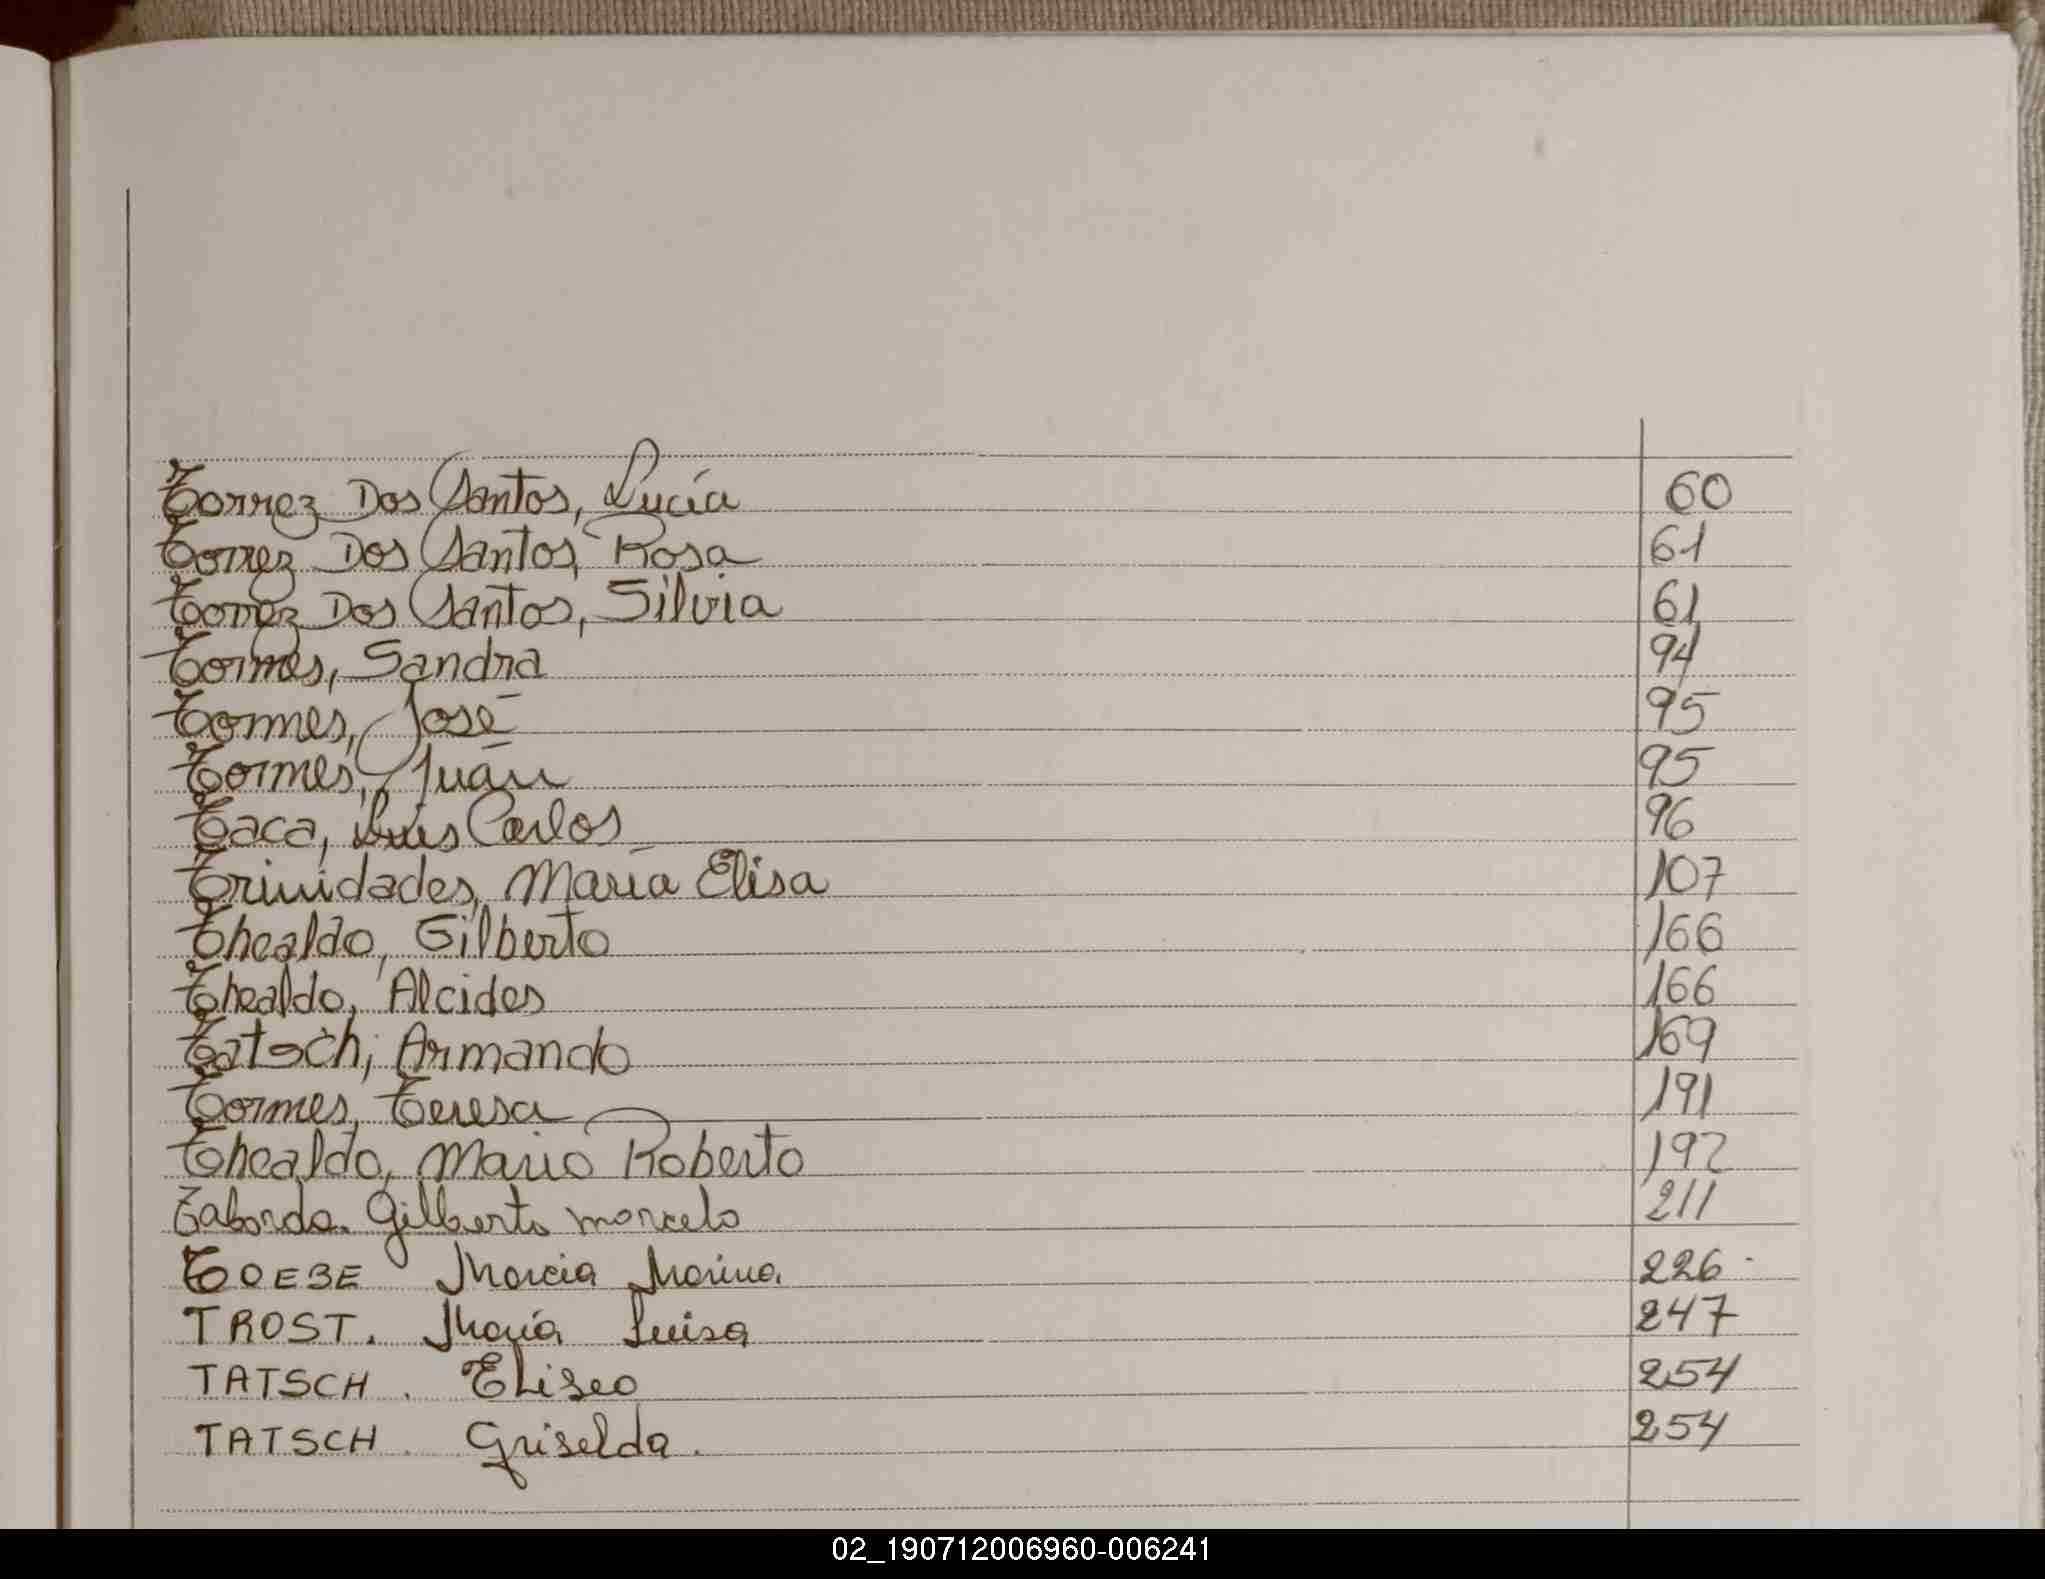 Torrez Dos Santos, Lucía 60
Torrez Dos Santos, Rosa 61
Torrez Dos Santos, Silvia 61
Tormes, Sandra 94
Tormes, José 95
Tormes, Juán 95
Taca, Luis Carlos 96
Trinidades, María Elisa 107
Thealdo, Gilberto 166
Thealdo, Alcides 166
Tatsch, Armando 169
Tormes, Teresa 191
Thealdo, Mario Roberto 192
Taborda. Gilberto Marcelo 211
TOEBE Marcia Marina. 226
TROST. María Luisa 247
TATSCH. Eliseo 254
TATSCH. Griselda. 254
02_190712006960-006241